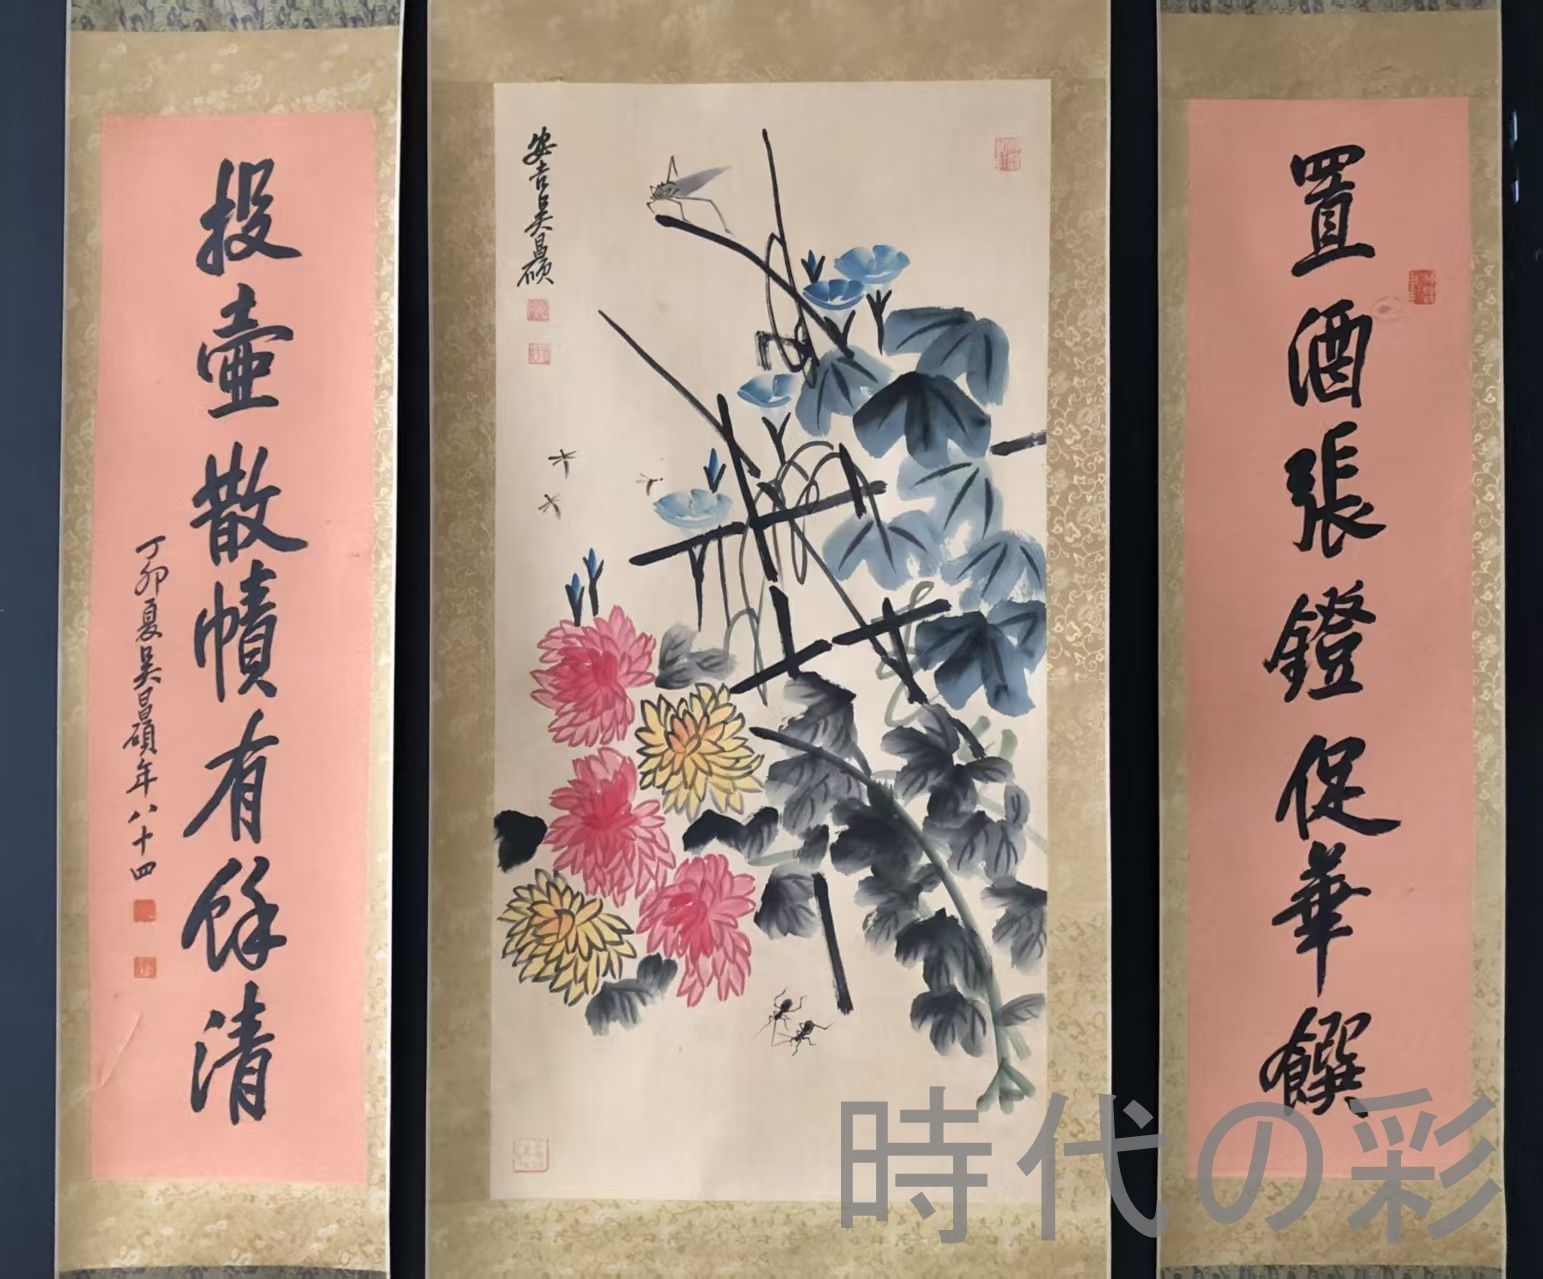 置酒張鐙促華饌
安吉吳昌碩
投壺散帙有餘清
丁卯夏吳昌碩年八十四
時代の彩